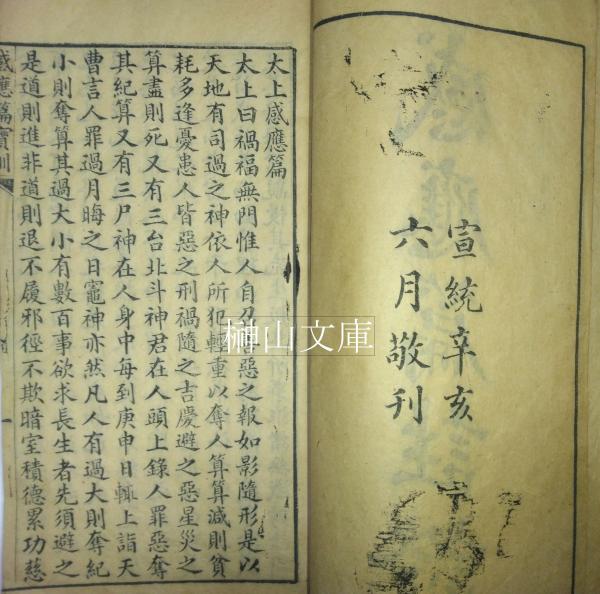 宣統辛亥
六月敬刊
太上感應篇
太上曰禍福無門惟人自召善惡之報如影隨形是以
天地有司過之神依人所犯輕重以奪人算算減則貧
耗多逢憂患人皆惡之刑禍隨之吉慶避之惡星災之
算盡則死又有三台北斗神君在人頭上錄人罪惡奪
其紀算又有三尸神在人身中每到庚申日輒上詣天
曹言人罪過月晦之日竈神亦然凡人有過大則奪紀
小則奪算其過大小有數百事欲求長生者先須避之
是道則進非道則退不履邪徑不欺暗室積德累功慈
感應篇寶訓
一
榊山文庫